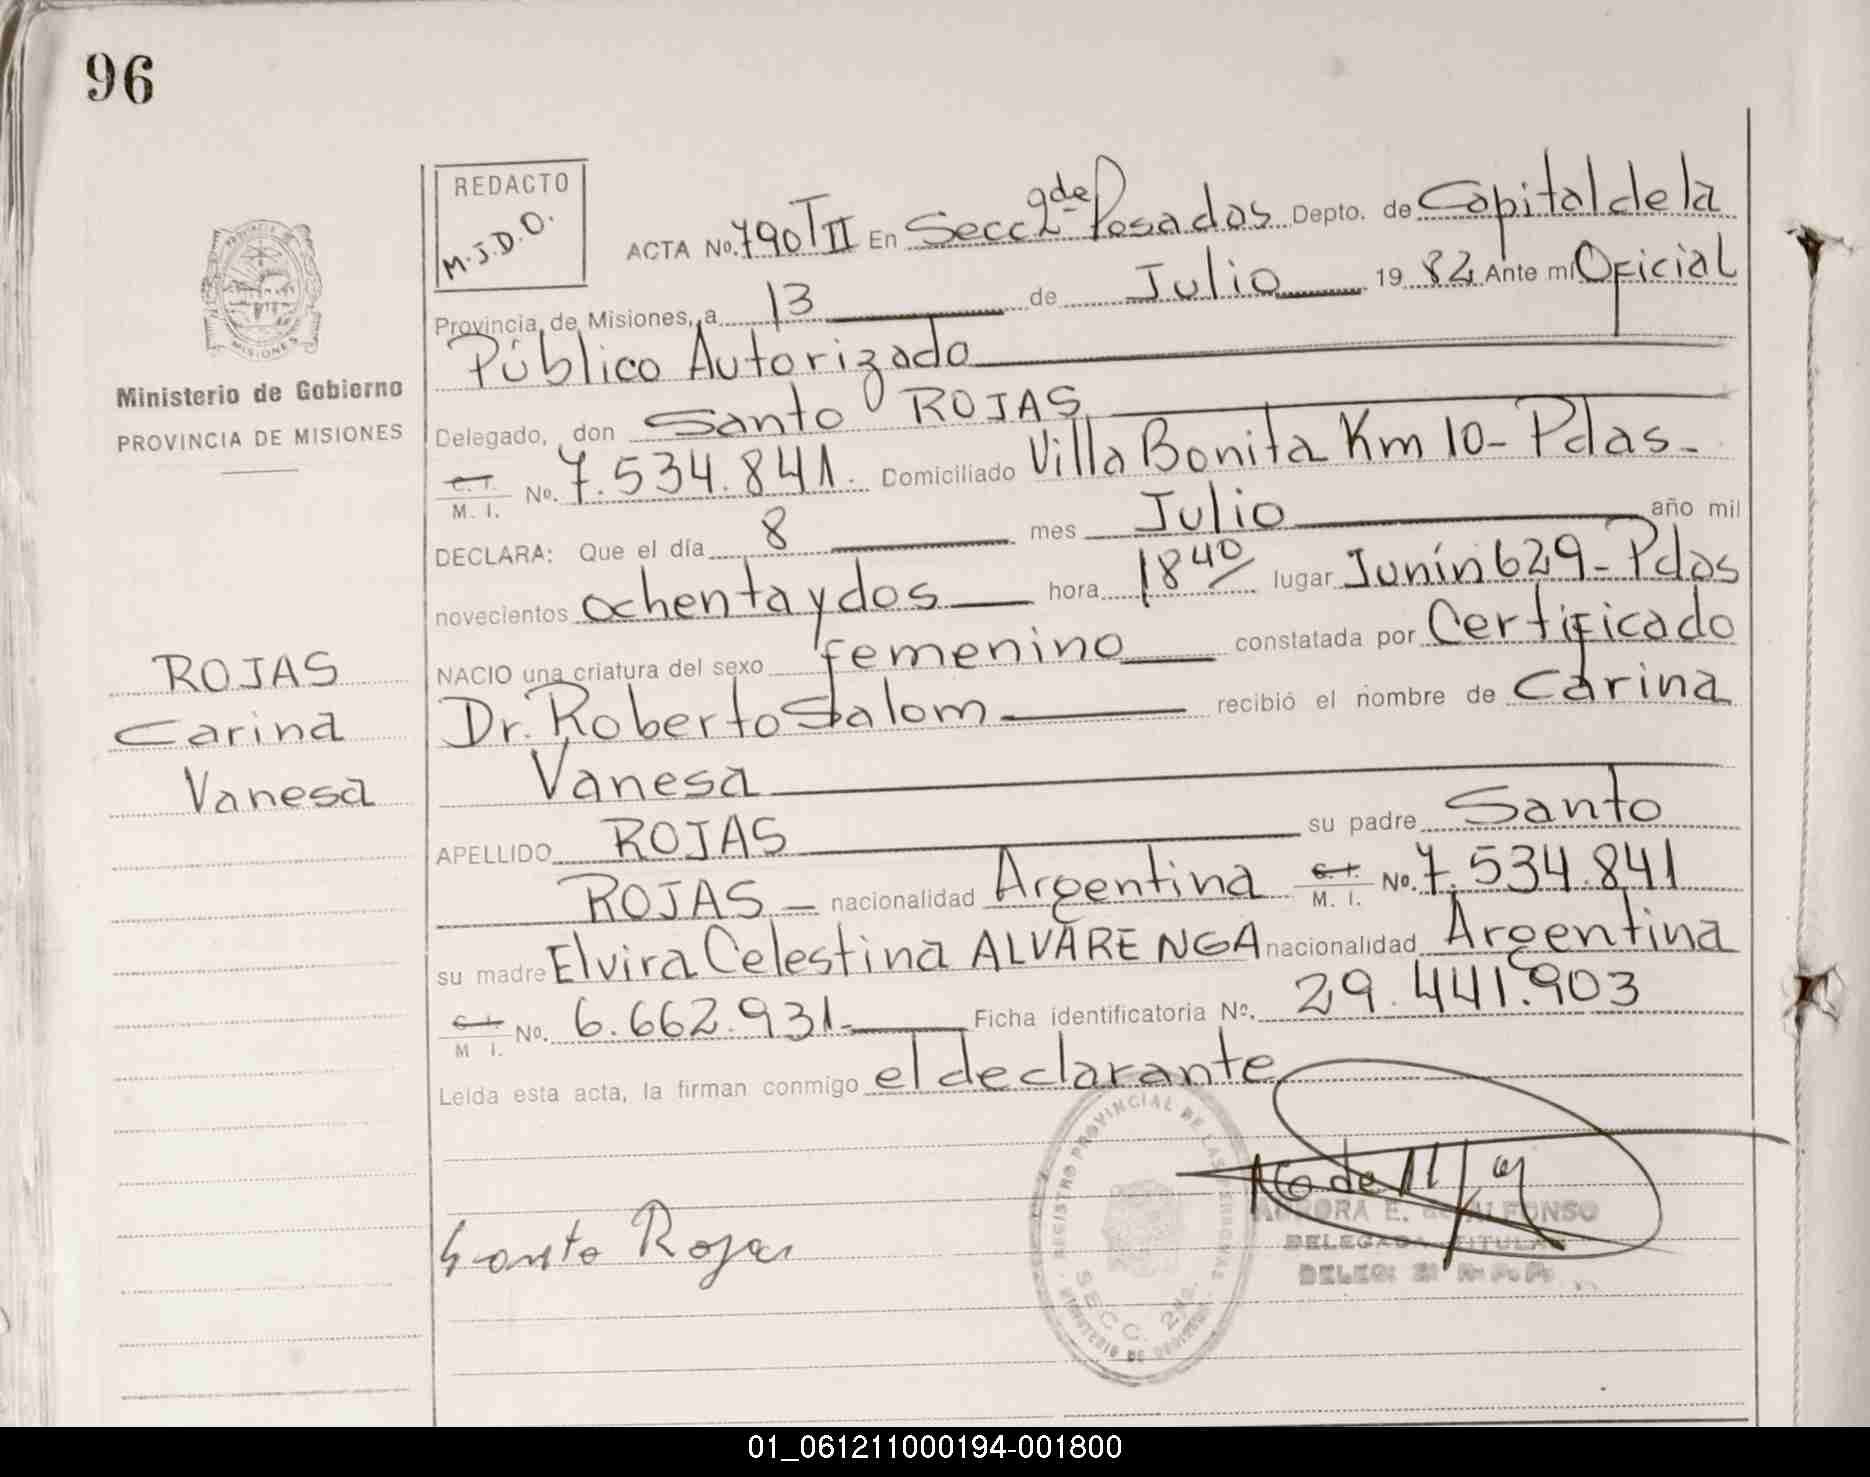 96
REDACTO
M.J.D.O.
ACTA No. 790 T II En Secc 2da Posadas Depto. de Capital de la
Provincia de Misiones, a 13 de Julio 19 82 Ante mí Oficial
Público Autorizado
Delegado, don Santo ROJAS
C. I.
M. I. No. 7.534.841. Domiciliado Villa Bonita Km 10- Pdas-
DECLARA: Que el día 8 mes Julio año mil
novecientos ochenta y dos hora 18 40 lugar Junín 629- Pdas
NACIO una criatura del sexo femenino constatada por Certificado
Dr. Roberto Salom recibió el nombre de Carina
Vanesa
APELLIDO ROJAS su padre Santo
ROJAS nacionalidad Argentina C. I. M. I. No. 7.534.841
su madre Elvira Celestina ALVARENGA nacionalidad Argentina
C. I. M. I. No. 6.662.931- Ficha identificatoria No. 29.441.903
Leída esta acta, la firman conmigo el declarante
Santo Rojas
PROVINCIA DE MISIONES
Ministerio de Gobierno
PROVINCIA DE MISIONES
ROJAS
Carina
Vanesa
REGISTRO PROVINCIAL DE LAS PERSONAS
SECC. 2da.
MINISTERIO DE GOBIERNO
AURORA E. de ALFONSO
DELEGADA TITULAR
01_061211000194-001800